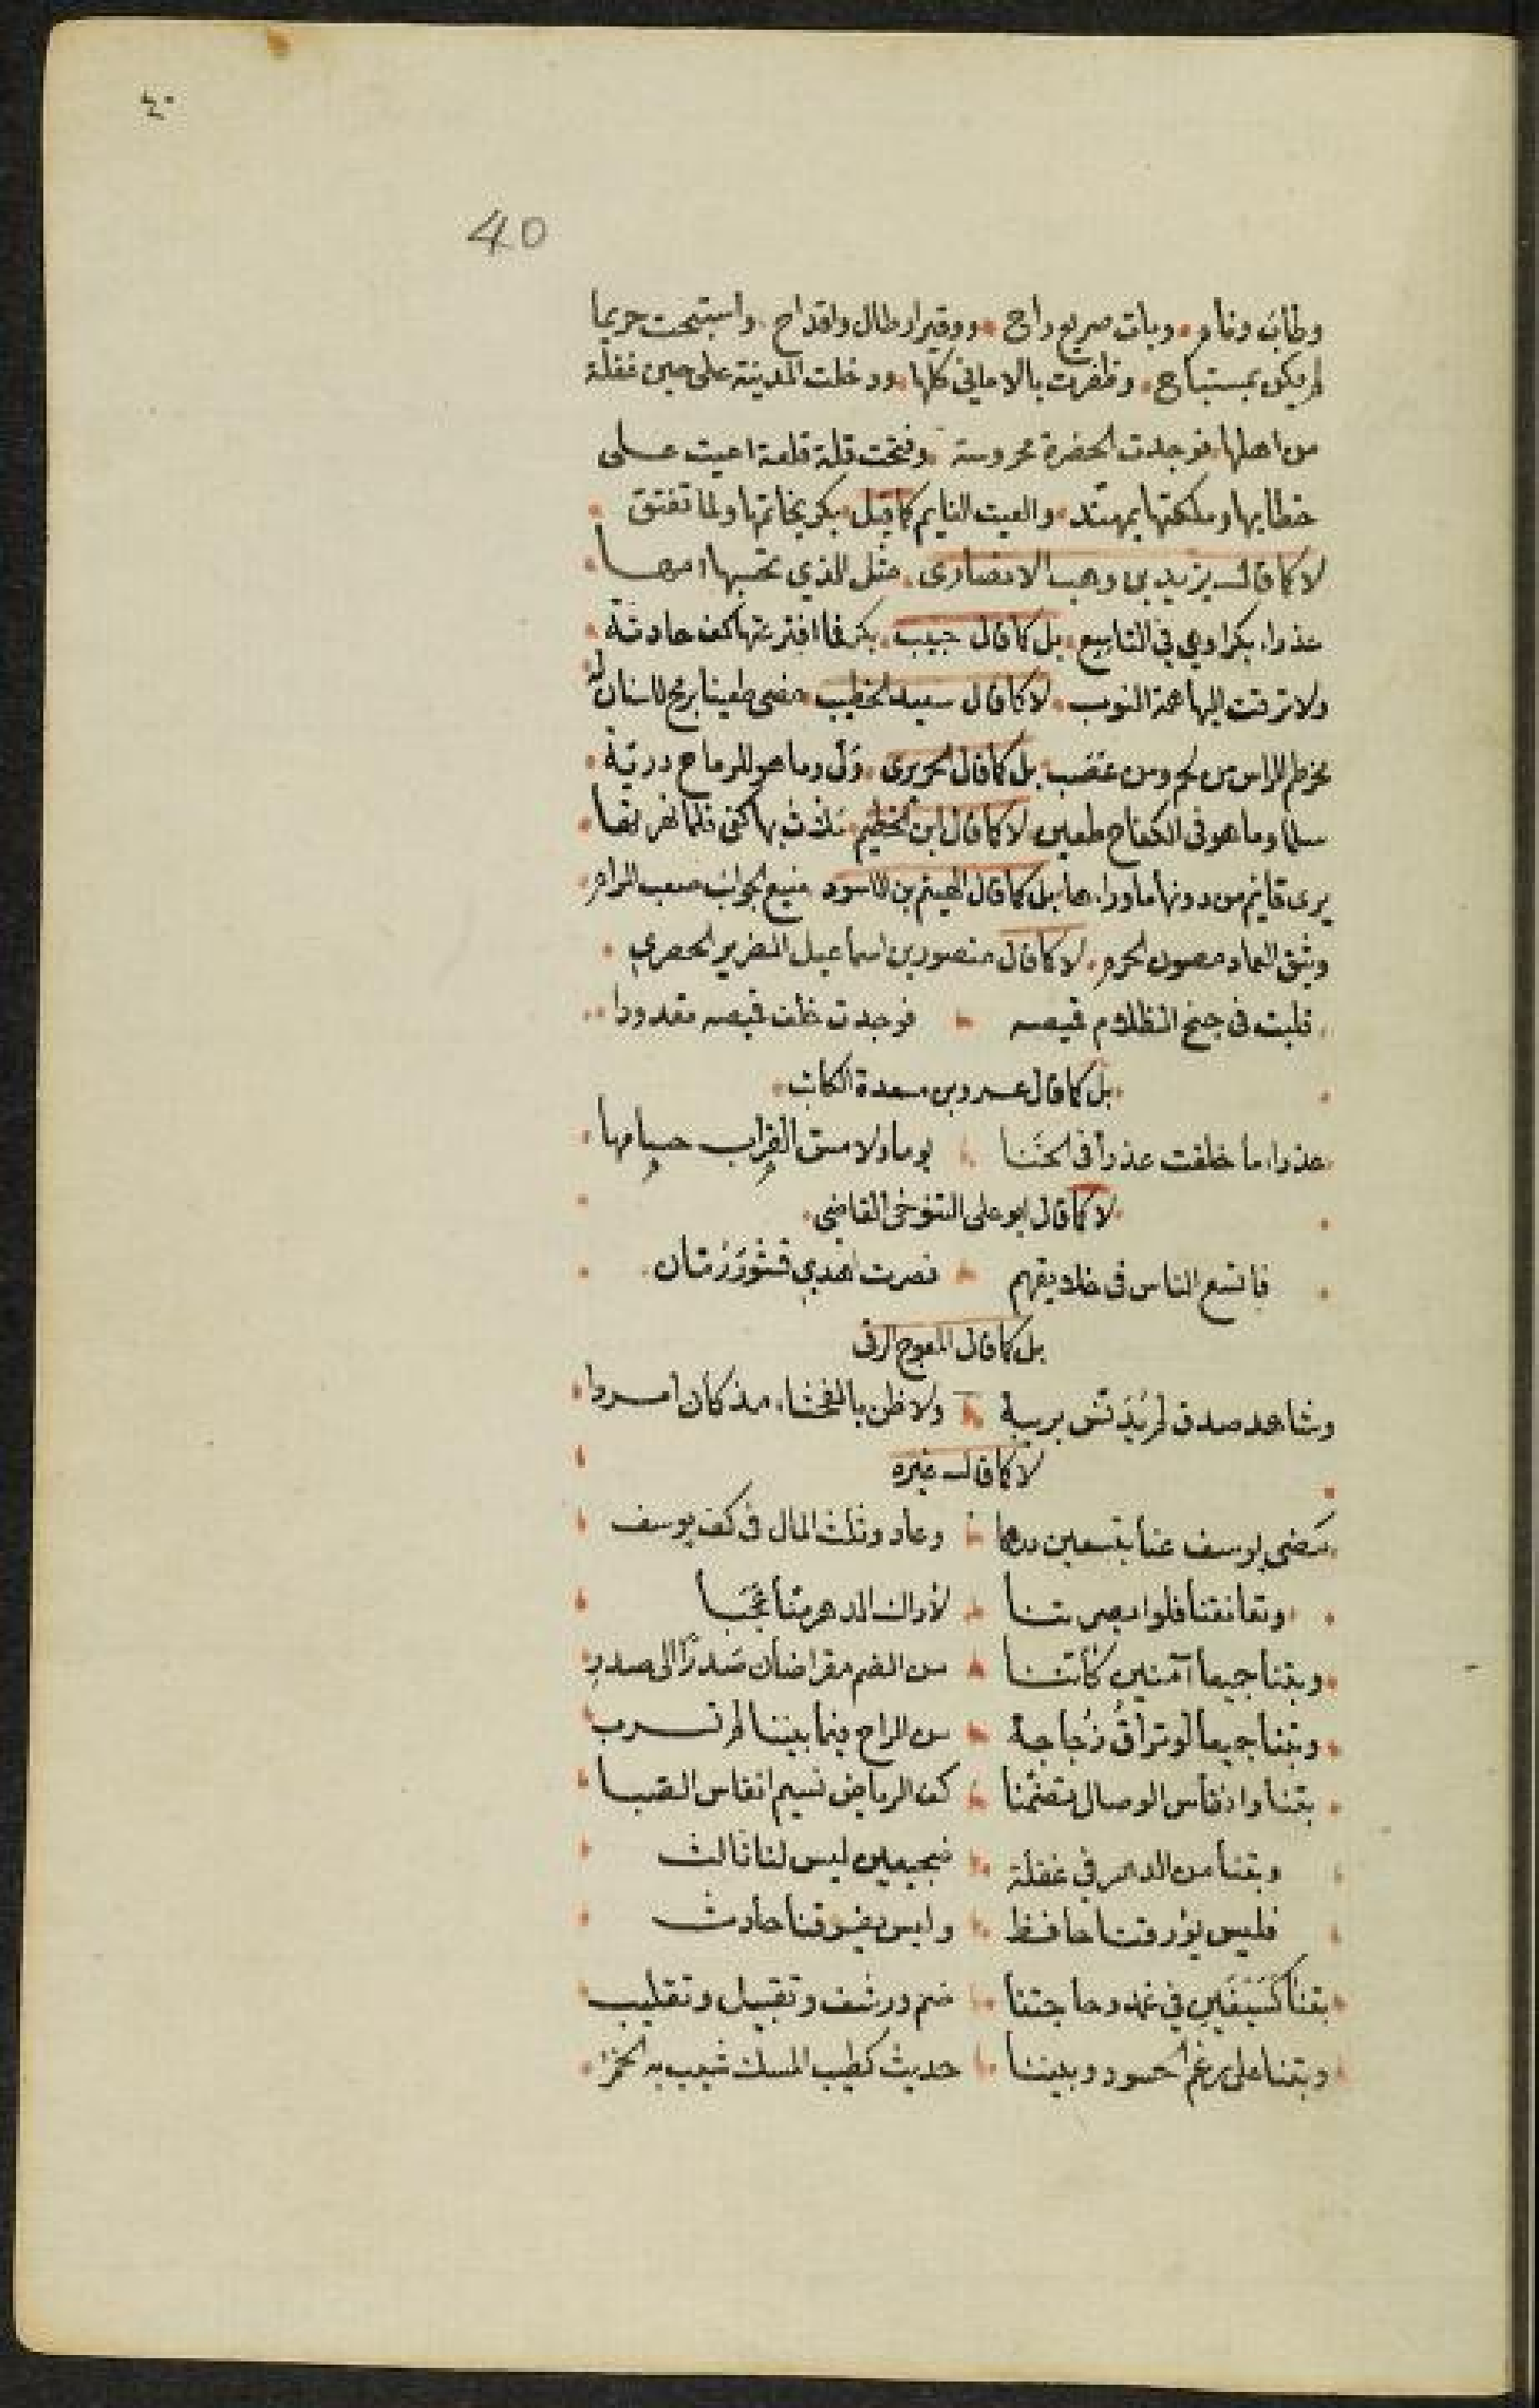 ٤٠
40
وطاب ونام وبات صريع راح ووقير ارطال واقداح واستبحت حريما
لم يكن بمستباح وظفرت بالاماني كلها ودخلت المدينة على حين غفلة
من اهلها فوجدت الحضرة محروسة وفتحت قلة قلعة اعيت على
خطابها وملكتها بمهند والفيت النايم كما قيل بكر بخاتمها ولما تفتق
لا كما قال يزيد بن وهب الانصارى مثل الذي تحسبها امها
عذراء بكرا وهي في التاسع بل كما قال حبيب بكر فما افترعتها كف حادثة
ولا ترقت اليها همة النوب لا كما قال سعيد الخطيب مضى طعينا برمح لا سنان له
مخرطم الراس من لحم ومن عصب بل كما قال الحريرى ولى وما هو للرماح دريّة
سلما وما هو فى الكفاح طعين لا كما قال ابن الخطيم ملكت بها كفى فلما نفر نفها
يرى قايم من دونها ما وراءها بل كما قال الهيثم بن الاسود منيع الجوانب صعب المرام
وثيق العماد مصون الحرم لا كما قال منصور بن اسماعيل الضرير الحصري
قلبت فى جنح الظلام قميصه فوجدت خلف قميصه مقدودا
بل كما قال عمرو بن مسعدة الكاتب
عذراء ما خلفت عذرا فى الخنا يوما ولا مست القراب حسامها
لا كما قال ابو على التنوخى القاضي
فاتسع الناس فى خلايقهم فصرت اهدي قشور رمان
بل كما قال المعوج الرقى
وشاهد صدق لم يُدَنّس بريبة ولا ظن بالفحشاء مذ كان امردا
لا كما قال غيره
مضى يوسف عنا بتسعين درهما وعاد وثلث المال فى كف يوسف
وتعانقنا فلو ابصرتنا لأراك الدهر منا عجبا
وبتنا جميعا آمنين كأننا من الضم مقراضان صدرًا الى صدر
وبتنا جميعا لو تراق زُجاجة من الراح فيما بيننا لم تسرب
بتنا وانفاس الوصال تضمنا كف الرياض نسيم انفاس الصبا
وبتنا من الدهر في غفلة ضجيعين ليس لنا ثالث
فليس يؤرقنا حافظ وليس يفرقنا حادث
بتنا كسَيفَين في غمد وحاجتنا ضم ورشف وتقبيل وتقليب
وبتنا على رغم الحسود وبيننا حديث كطيب المسك شيب به الخمر